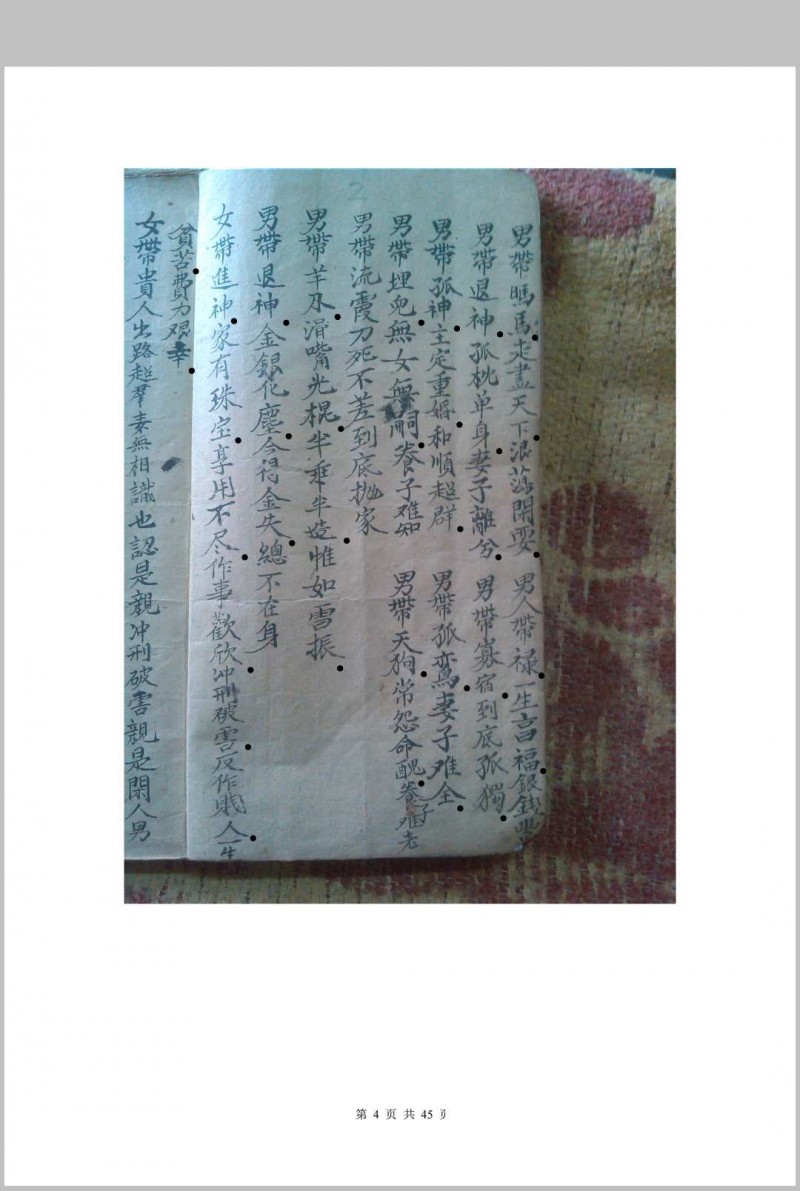 男帶馬走盡天下浪蕩閑耍 男人帶祿一生言福銀錢
男帶退神孤枕单身妻子離兮 男帶寡宿到底孤獨
男帶孤神主定重婚和順超群 男帶孤鸞妻子难全
男帶埋兒無女無嗣養子难知 男帶天狗常怨命醜養子难老
男帶流霞刀死不差到底抛家
男帶羊刃滑嘴光棍半乖半惟如雪振
男帶退神金銀化塵今得金失總不在身
女帶進神家有珠宝享用不尽作事歡欣冲刑破害反作賎人一生
貧苦費力艰辛
女帶貴人出路超羣素無相識也認是親冲刑破害親是閑人男
第 4 页 共 45 页